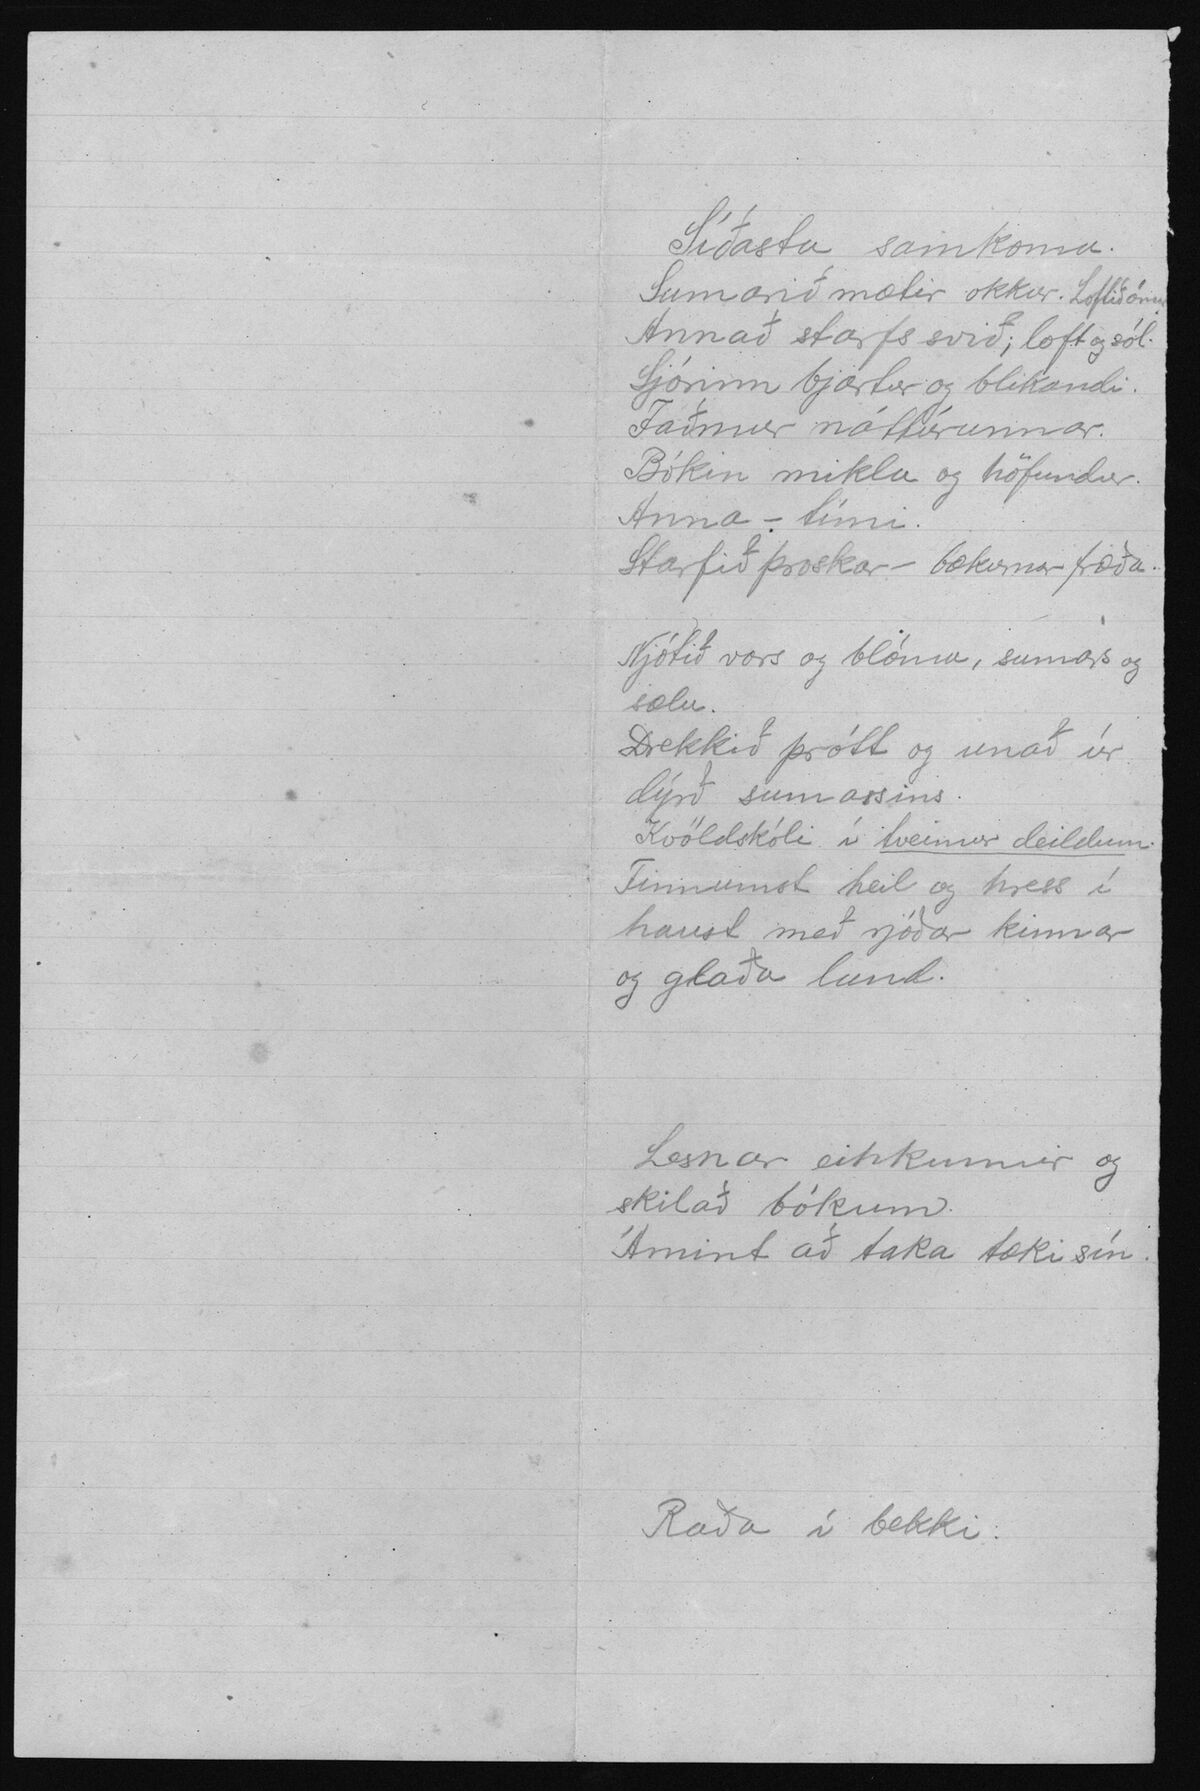 Síðasta samkoma.
Sumarið mætir okkur. Loftið ómar
Annað starfs svið; loft og sól.
Sjórinn bjartur og blikandi.
Faðmur náttúrunnar.
Bókin mikla og höfundur.
Anna - tími.
Starfið þroskar - bækurnar fræða.
Njótið vors og blóma, sumars og
sælu.
Drekkið þrótt og unað úr
dýrð sumarsins.
Kvöldskóli í tveimur deildum.
Finnumst heil og hress í
haust með rjóðar kinnar
og glaða lund.
Lesnar einkunnir og
skilað bókum.
Ámint að taka tæki sín.
Raða í bekki.